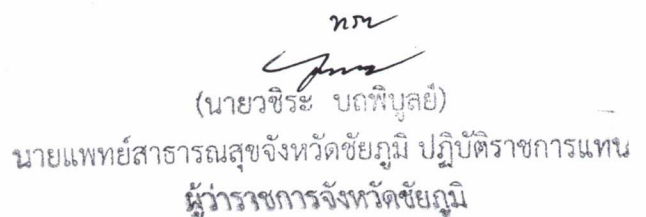 ทราบ
(นายวชิระ บถพิบูลย์)
นายแพทย์สาธารณสุขจังหวัดชัยภูมิ ปฏิบัติราชการแทน
ผู้ว่าราชการจังหวัดชัยภูมิ